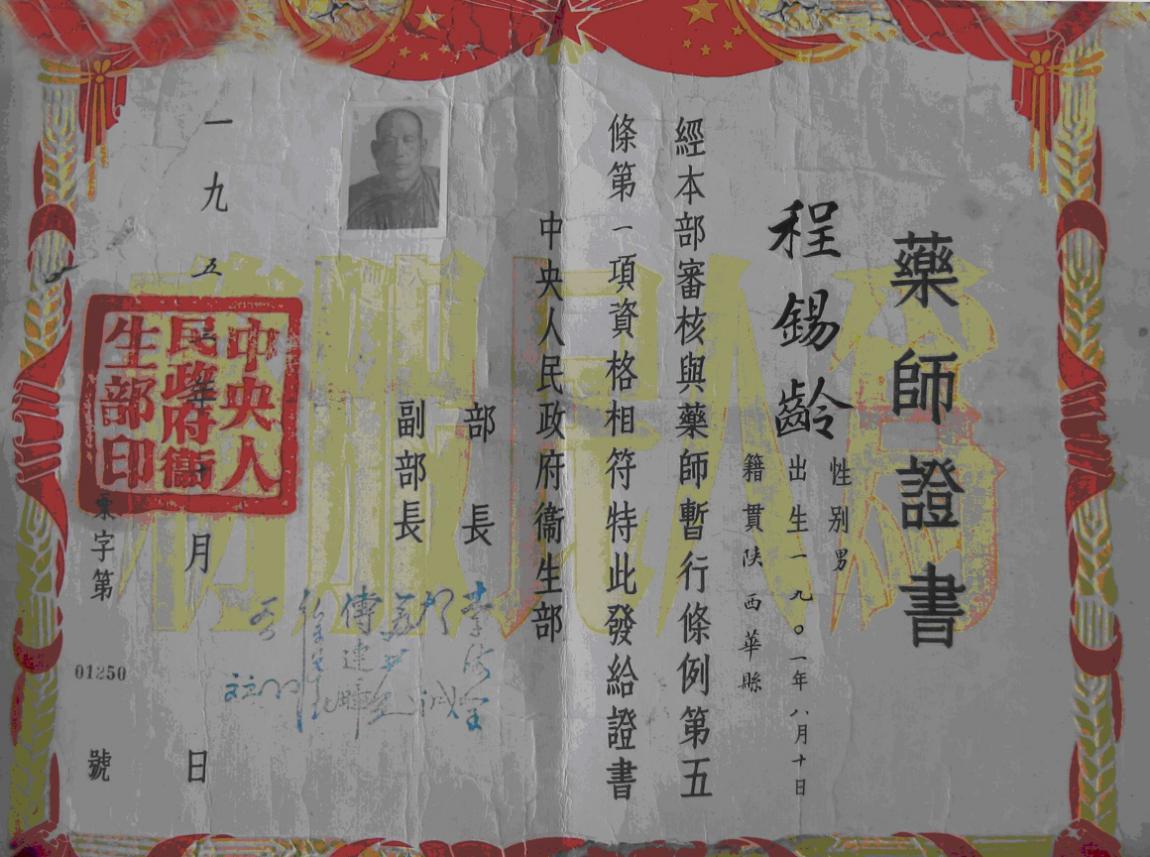 藥師證書
程錫齡
性别男
出生一九〇一年八月十日
籍貫陕西華縣
經本部審核與藥師暫行條例第五
條第一項資格相符特此發給證書
中央人民政府衞生部
部長
副部長
李德全
傅連暲
一九五 年 月 日
中央人
民政府衞
生部印
字第01250號